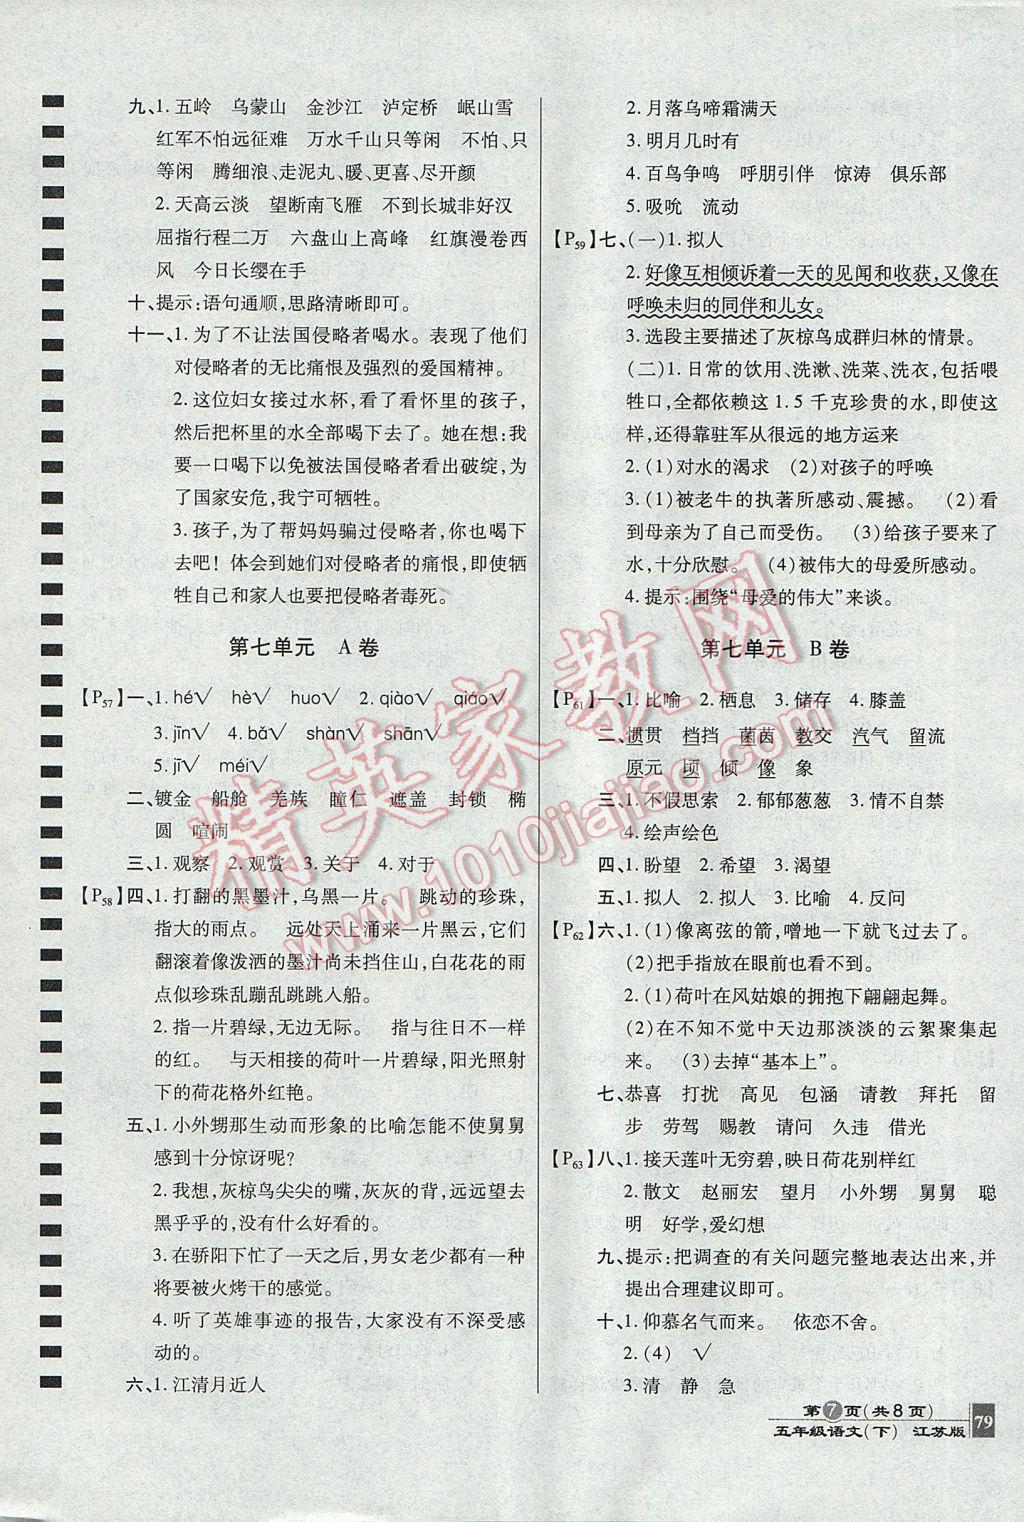 九、1. 五岭 乌蒙山 金沙江 泸定桥 岷山雪
红军不怕远征难 万水千山只等闲 不怕、只
等闲 腾细浪、走泥丸、暖、更喜、尽开颜
2. 天高云淡 望断南飞雁 不到长城非好汉
屈指行程二万 六盘山上高峰 红旗漫卷西
风 今日长缨在手
十、提示:语句通顺,思路清晰即可。
十一、1. 为了不让法国侵略者喝水。表现了他们
对侵略者的无比痛恨及强烈的爱国精神。
2. 这位妇女接过水杯,看了看怀里的孩子,
然后把杯里的水全部喝下去了。她在想:我
要一口喝下以免被法国侵略者看出破绽,为
了国家安危,我宁可牺牲。
3. 孩子,为了帮妈妈骗过侵略者,你也喝下
去吧!体会到她们对侵略者的痛恨,即使牺
牲自己和家人也要把侵略者毒死。
第七单元 A卷
【P57】一、1. hé√ hè√ huo√ 2. qiào√ qiáo√
3. jīn√ 4. bǎ√ shàn√ shān√
5. jī√ méi√
二、镀金 船舱 羌族 瞳仁 遮盖 封锁 椭
圆 喧闹
三、1. 观察 2. 观赏 3. 关于 4. 对于
【P58】四、1. 打翻的黑墨汁,乌黑一片。 跳动的珍珠,
指大的雨点。 远处天上涌来一片黑云,它们
翻滚着像泼洒的墨汁尚未挡住山,白花花的雨
点似珍珠乱蹦乱跳跳入船。
2. 指一片碧绿,无边无际。 指与往日不一样
的红。 与天相接的荷叶一片碧绿,阳光照射
下的荷花格外红艳。
五、1. 小外甥那生动而形象的比喻怎能不使舅舅
感到十分惊讶呢?
2. 我想,灰椋鸟尖尖的嘴,灰灰的背,远远望去
黑乎乎的,没有什么好看的。
3. 在骄阳下忙了一天之后,男女老少都有一种
将要被火烤干的感觉。
4. 听了英雄事迹的报告,大家没有不深受感
动的。
六、1. 江清月近人
2. 月落乌啼霜满天
3. 明月几时有
4. 百鸟争鸣 呼朋引伴 惊涛 俱乐部
5. 吸吮 流动
【P59】七、(一)1. 拟人
2. 好像互相倾诉着一天的见闻和收获,又像在
呼唤未归的同伴和儿女。
3. 选段主要描述了灰椋鸟成群归林的情景。
(二)1. 日常的饮用、洗漱、洗菜、洗衣,包括喂
牲口,全都依赖这 1.5 千克珍贵的水,即使这
样,还得靠驻军从很远的地方运来
2. (1)对水的渴求 (2)对孩子的呼唤
3. (1)被老牛的执著所感动、震撼。 (2)看
到母亲为了自己而受伤。 (3)给孩子要来了
水,十分欣慰。 (4)被伟大的母爱所感动。
4. 提示:围绕“母爱的伟大”来谈。
第七单元 B卷
【P61】一、1. 比喻 2. 栖息 3. 储存 4. 膝盖
二、惯贯 档挡 菌茵 教交 汽气 留流
原元 顷 倾 像 象
三、1. 不假思索 2. 郁郁葱葱 3. 情不自禁
4. 绘声绘色
四、1. 盼望 2. 希望 3. 渴望
五、1. 拟人 2. 拟人 3. 比喻 4. 反问
【P62】六、1. (1)像离弦的箭,噌地一下就飞过去了。
(2)把手指放在眼前也看不到。
2. (1)荷叶在风姑娘的拥抱下翩翩起舞。
(2)在不知不觉中天边那淡淡的云絮聚集起
来。 (3)去掉“基本上”。
七、恭喜 打扰 高见 包涵 请教 拜托 留
步 劳驾 赐教 请问 久违 借光
【P63】八、1. 接天莲叶无穷碧,映日荷花别样红
2. 散文 赵丽宏 望月 小外甥 舅舅 聪
明 好学,爱幻想
九、提示:把调查的有关问题完整地表达出来,并
提出合理建议即可。
十、1. 仰慕名气而来。 依恋不舍。
2. (4) √
3. 清 静 急
第7页(共8页)
五年级语文(下) 江苏版 79
精英家教网
www.1010jiajiao.com